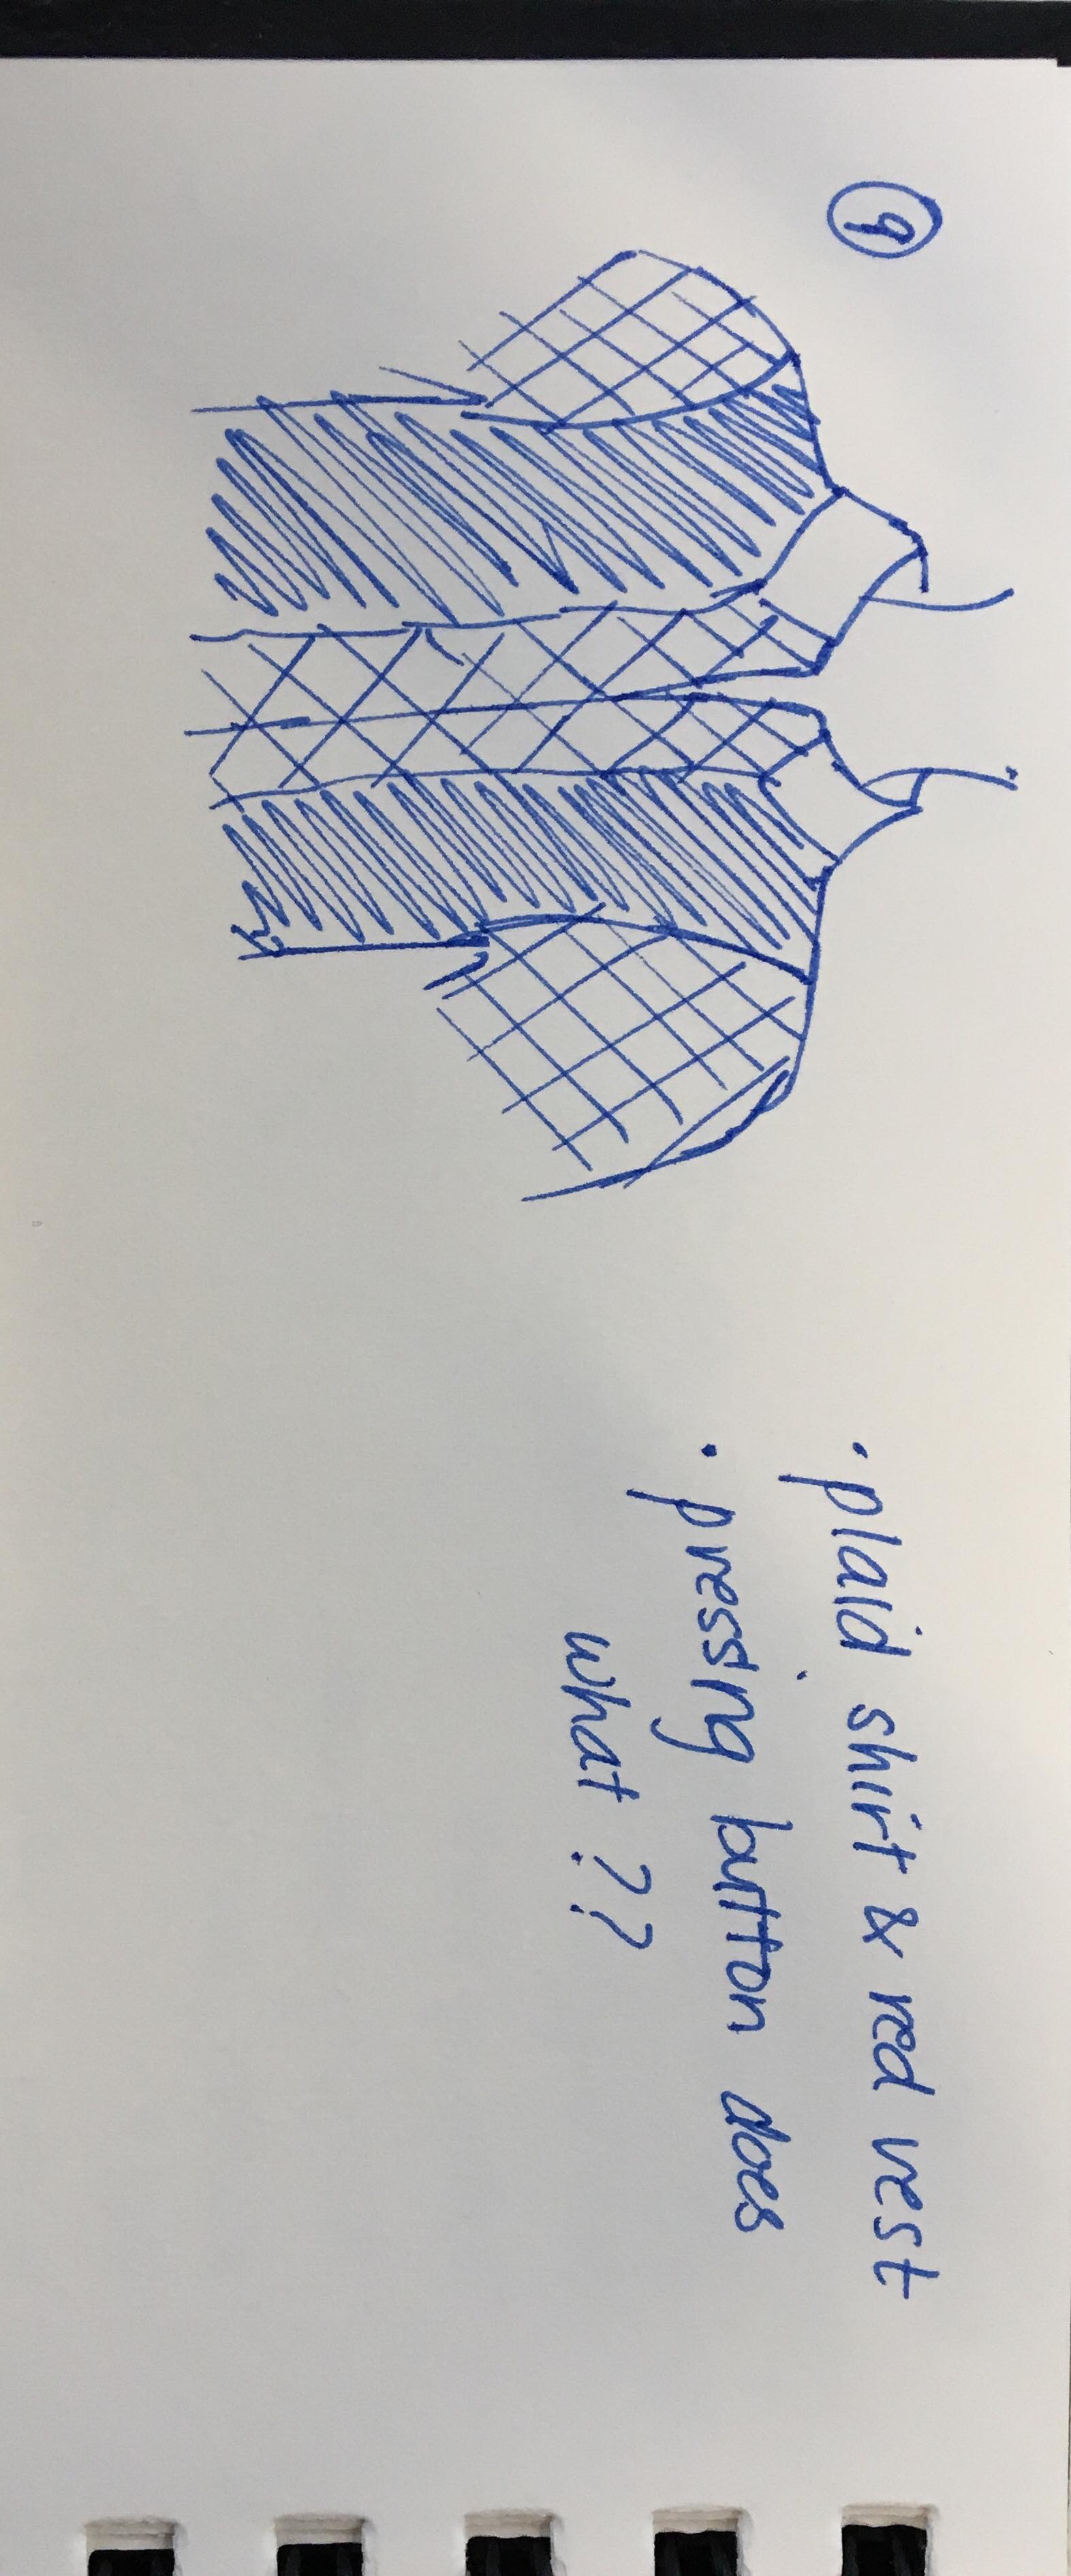 9
· plaid shirt & red vest
· pressing button does
what ??